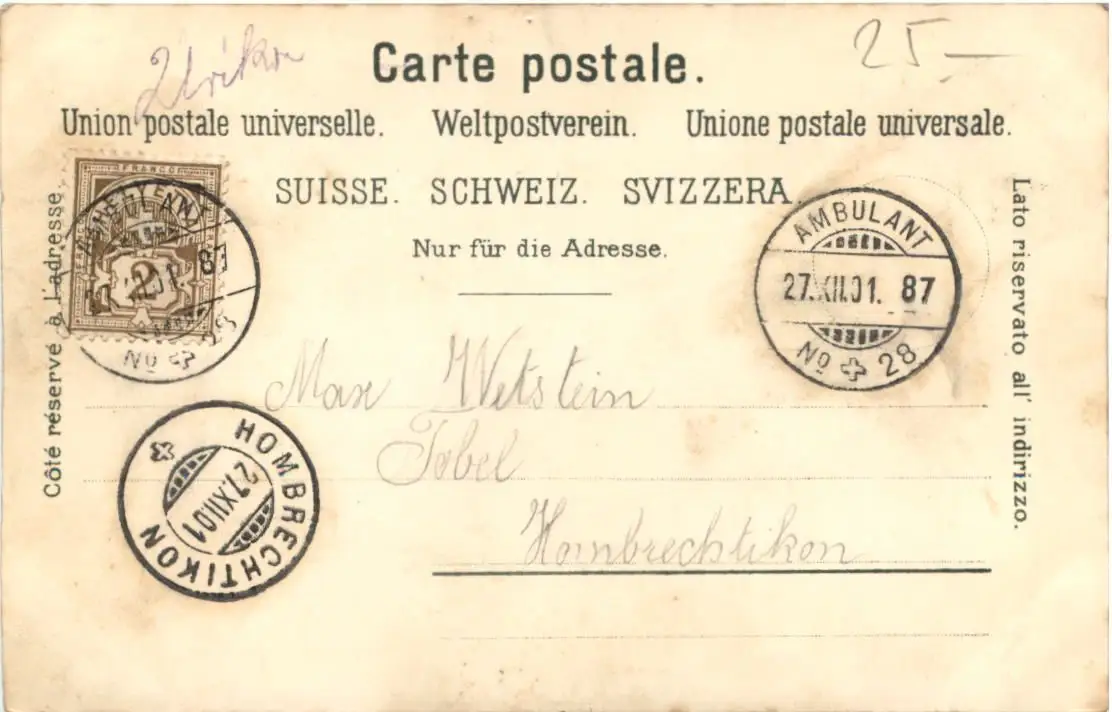 Ürikon
25 —
Carte postale.
Union postale universelle. Weltpostverein. Unione postale universale.
SUISSE. SCHWEIZ. SVIZZERA.
Nur für die Adresse.
Côté réservé à l'adresse
Lato riservato all' indirizzo.
FRANCO
2
AMBULANT
No 28
AMBULANT
27.XII.01. 87
No 28
Max Wetstein
Tobel
Hombrechtikon
HOMBRECHTIKON
27.XII.01